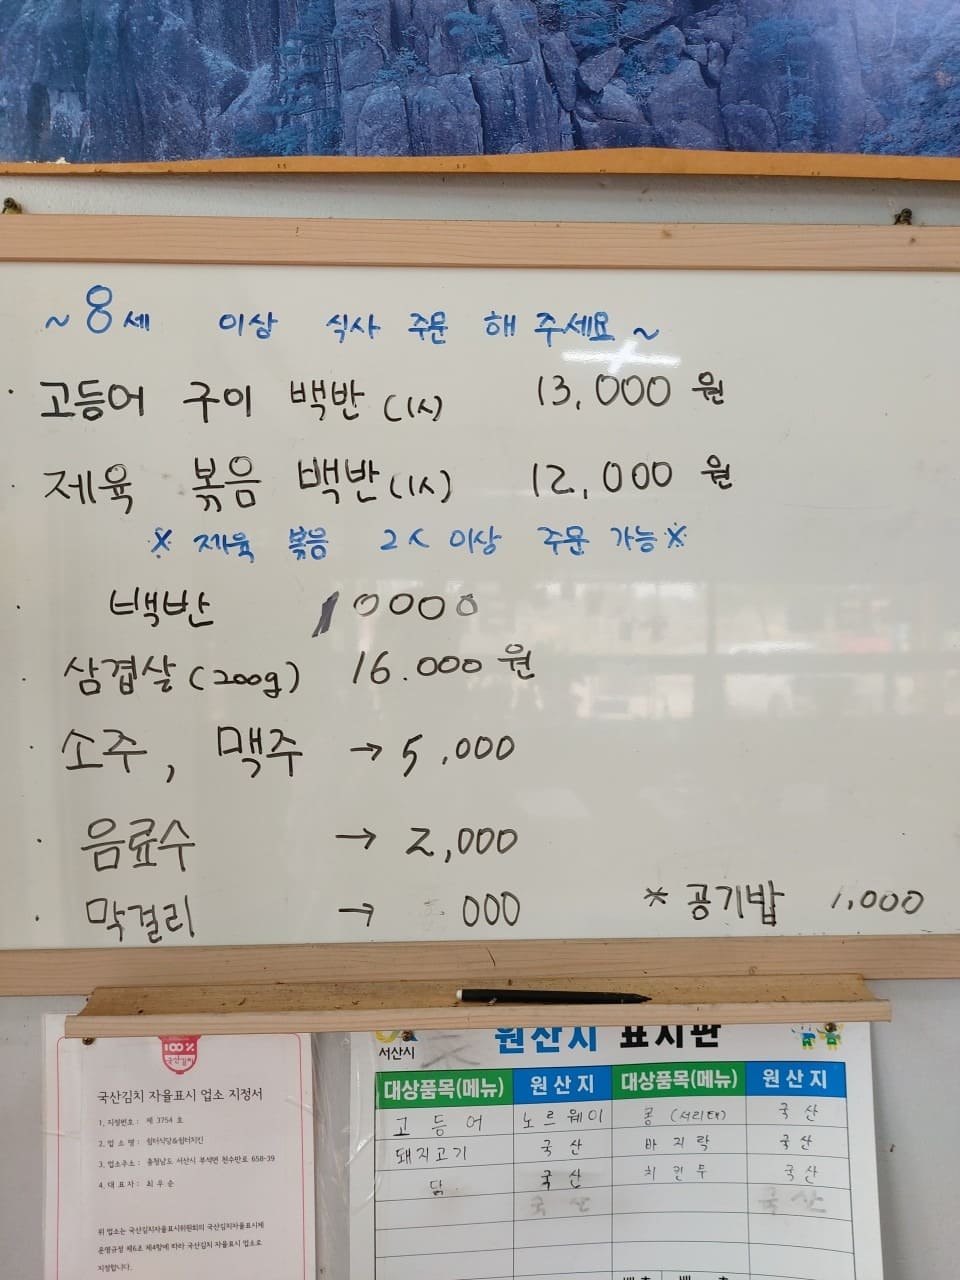 ~ 8세 이상 식사 주문 해 주세요 ~
· 고등어 구이 백반 (1人) 13,000 원
· 제육 볶음 백반 (1人) 12,000 원
※ 제육 볶음 2人 이상 주문 가능 ※
· 백반 10000
· 삼겹살 (200g) 16.000 원
· 소주, 맥주 → 5,000
· 음료수 → 2,000
· 막걸리 → 000
* 공기밥 1,000
100%
국산김치
국산김치 자율표시 업소 지정서
1. 지정번호 : 제 3754 호
2. 업 소 명 : 쉼터식당&쉼터치킨
3. 업소주소 : 충청남도 서산시 부석면 천수만로 658-39
4. 대 표 자 : 최 우 순
위 업소는 국산김치자율표시위원회의 국산김치자율표시제
운영규정 제6조 제4항에 따라 국산김치 자율표시 업소로
지정합니다.
서산시
원산지 표시판
대상품목(메뉴) 원 산 지 대상품목(메뉴) 원 산 지
고 등 어 노르웨이 콩 (서리태) 국 산
돼지고기 국 산 바 지 락 국 산
닭 국 산 치 킨 무 국 산
국 산 국 산